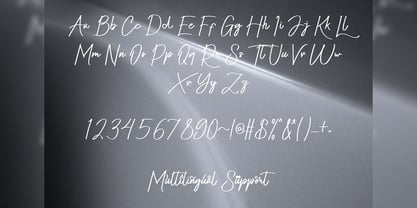 Aa Bb Cc Dd Ee Ff Gg Hh Ii Jj Kk Ll
Mm Nn Oo Pp Qq Rr Ss Tt Uu Vv Ww
Xx Yy Zz
1234567890~!@#$%^&*()_+-
Multilingual Support